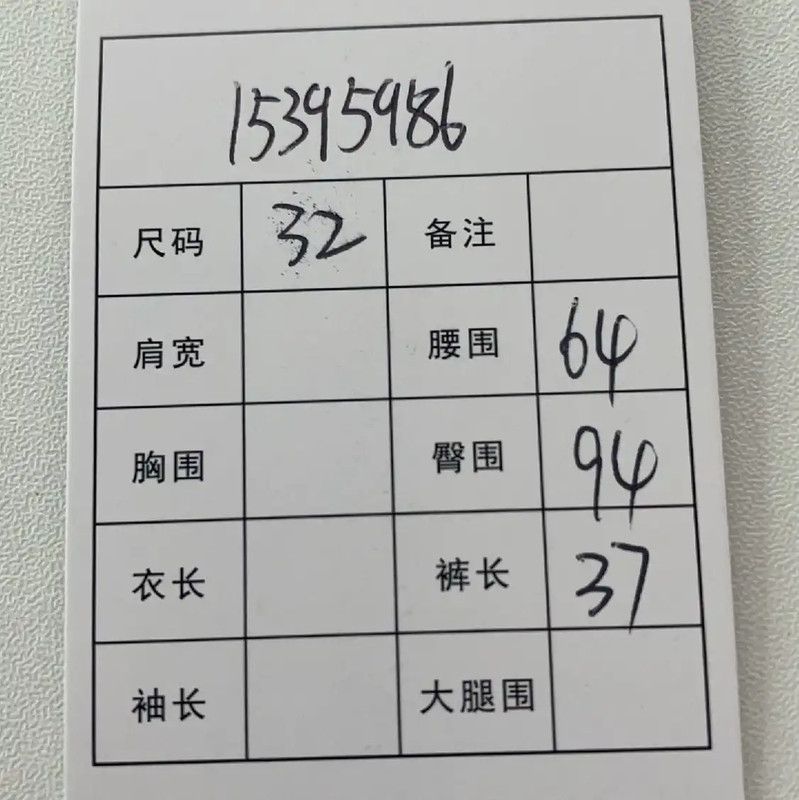 15395986
尺码 32 备注
肩宽 腰围 64
胸围 臀围 94
衣长 裤长 37
袖长 大腿围